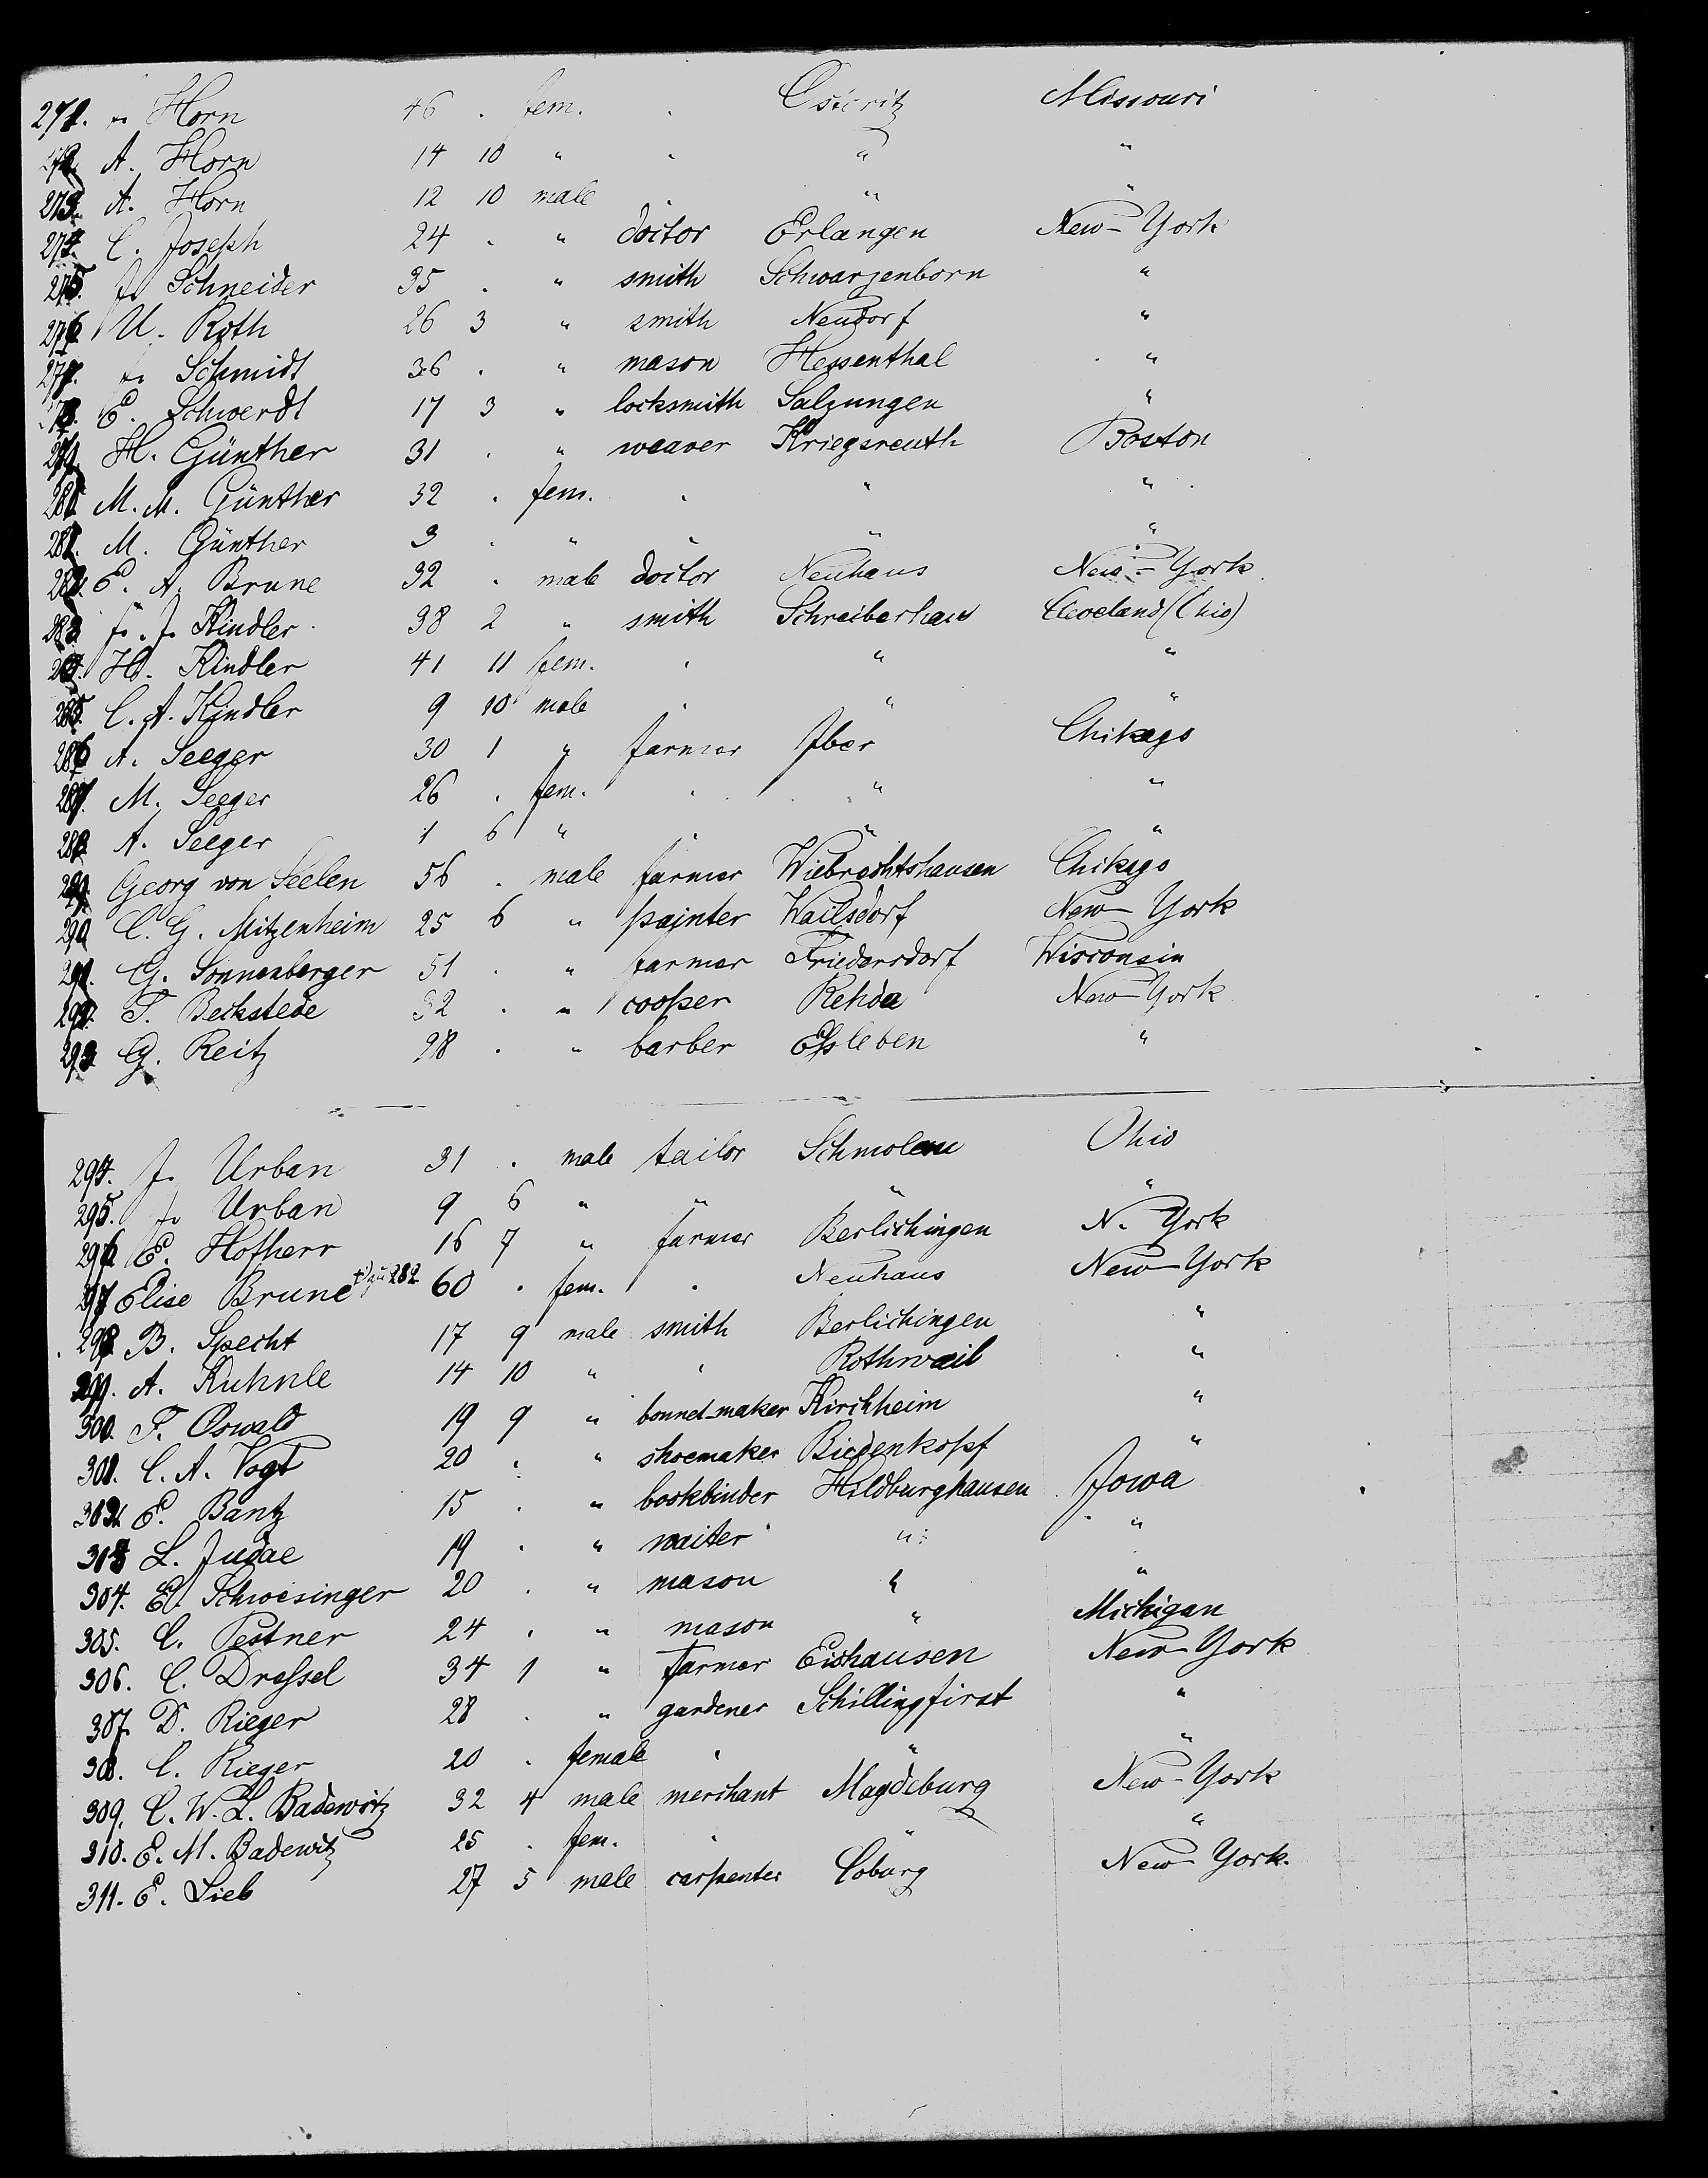 271. Horn 46 . fem. . Osteritz Missouri
272. A. Horn 14 10 " . " "
273. A. Horn 12 10 male . " "
274. C. Joseph 24 . " doctor Erlangen New-York
275. J. Schneider 35 . " smith Schwarzenborn "
276. U. Roth 26 3 " smith Neudorf "
277. Schmidt 36 . " mason Hessenthal "
278. E. Schwerdt 17 3 " locksmith Salzungen "
279. H. Günther 31 . " weaver Kriegsreuth Boston
280. M. M. Günther 32 . fem. . " "
281. M. Günther 3 . " " " "
282. E. A. Brune 32 . male doctor Neuhaus New-York
283. F. J. Kindler 38 2 " smith Schreiberhau Cleveland (Ohio)
284. H. Kindler 41 11 fem. . " "
285. C. A. Kindler 9 10 male . " "
286. A. Seeger 30 1 " farmer Iber Chikago
287. M. Seeger 26 . fem. . " "
288. A. Seeger 1 6 " . " "
289. Georg von Seelen 56 . male farmer Wiebrechtshausen Chikago
290. C. G. Mitzenheim 25 6 " painter Wailsdorf New-York
291. G. Sonnenberger 51 . " farmer Friedersdorf Wisconsin
292. T. Beckstede 32 . " cooper Rehda New-York
293. G. Reitz 28 . " barber Eisleben "
294. J. Urban 31 . male tailor Schmolenu Ohio
295. J. Urban 9 6 " " " "
296. E. Hofherr 16 7 " farmer Berlichingen N. York
297. Elise Brune †) zu 282 60 . fem. . Neuhaus New-York
298. B. Specht 17 9 male smith Berlichingen "
299. A. Kuhnle 14 10 " . Rothwail "
300. F. Oswald 19 9 " bonnet-maker Kirchheim "
301. C. A. Vogt 20 . " shoemaker Biedenkopf "
302. E. Bantz 15 . " bookbinder Hildburghausen Jowa
303. L. Judae 19 . " waiter " "
304. E. Schwesinger 20 . " mason " "
305. C. Pestner 24 . " mason " Michigan
306. C. Dressel 34 1 " farmer Eishausen New-York
307. D. Rieger 28 . " gardener Schillingfirst "
308. C. Rieger 20 . female . " "
309. C. W. L. Badewitz 32 4 male merchant Magdeburg New-York
310. E. M. Badewitz 25 . fem. . " "
311. E. Lieb 27 5 male carpenter Coburg New-York.